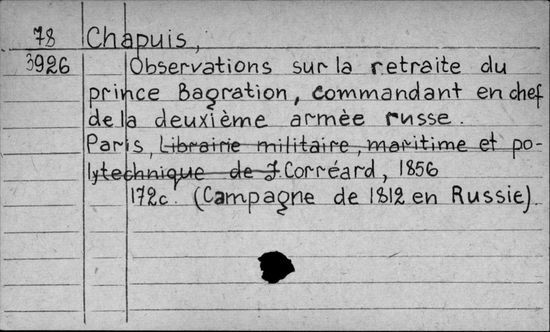 78 Chapuis,
3926 Observations sur la retraite du
prince Bagration, commandant en chef
de la deuxième armèe russe.
Paris, Librairie militaire, maritime et po-
lytechnique de J. Corréard, 1856
172c. (Campagne de 1812 en Russie).